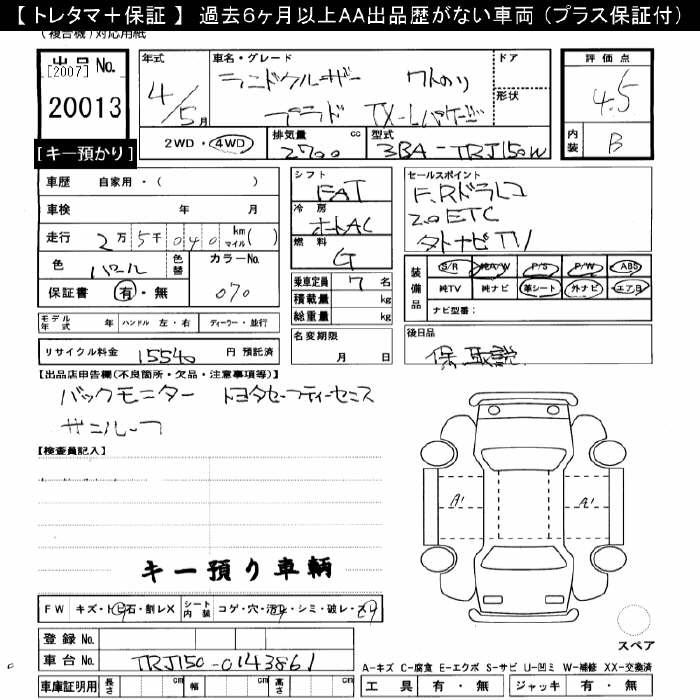 【 トレタマ＋保証 】 過去6ヶ月以上AA出品歴がない車両（プラス保証付）
（複合機）対応用紙
出品No.
[2007]
20013
[キー預かり]
年式
4/5月
車名・グレード
ランドクルーザー ワゴン
プラド TX-Lパッケージ
ドア
形状
評価点
4.5
内装 B
2WD・4WD
排気量 cc
2700
型式
3BA-TRJ150W
車歴 自家用・( )
車検 年 月
走行 2万5千040 km マイル( )
色 パール 色替
カラーNo.
070
保証書 有・無
シフト
FAT
冷房
オートAC
燃料
G
乗車定員 7名
積載量 kg
総重量 kg
名変期限
月 日
セールスポイント
F.Rドラレコ
2.0ETC
ナビTV
装備品
S/R 純A/W P/S P/W ABS
純TV 純ナビ 革シート 外ナビ エアB
ナビ型番：
モデル年式 年 ハンドル 左・右 ディーラー・並行
リサイクル料金 15540 円 預託済
後日品
保 取説
【出品店申告欄(不良箇所・欠品・注意事項等)】
バックモニター トヨタセーフティーセンス
サンルーフ
【検査員記入】
A1 A1
キー預り車輌
FW キズ・ト・石・割レX シート内装 コゲ・穴・汚レ・シミ・破レ・スレ
登録No.
車台No. TRJ150-0143861
スペア
A-キズ C-腐食 E-エクボ S-サビ U-凹ミ W-補修 XX-交換済
車庫証明用 長さ cm 幅 cm 高さ cm
工具 有・無 ジャッキ 有・無